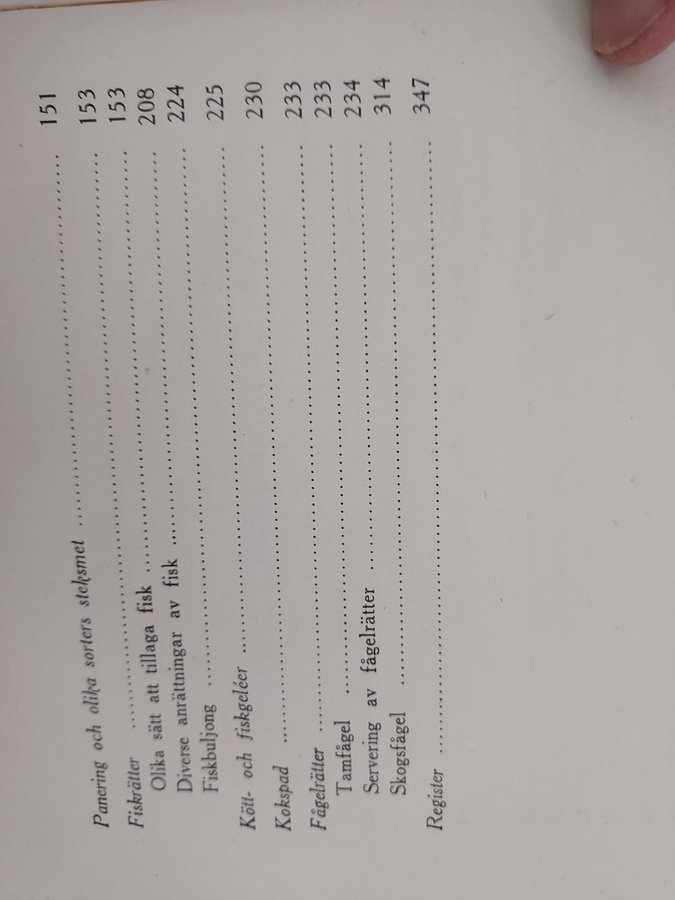 Panering och olika sorters steksmet ........ 151
Fiskrätter ........ 153
Olika sätt att tillaga fisk ........ 153
Diverse anrättningar av fisk ........ 208
Fiskbuljong ........ 224
Kött- och fiskgeléer ........ 225
Kokspad ........ 230
Fågelrätter ........ 233
Tamfågel ........ 233
Servering av fågelrätter ........ 234
Skogsfågel ........ 314
Register ........ 347